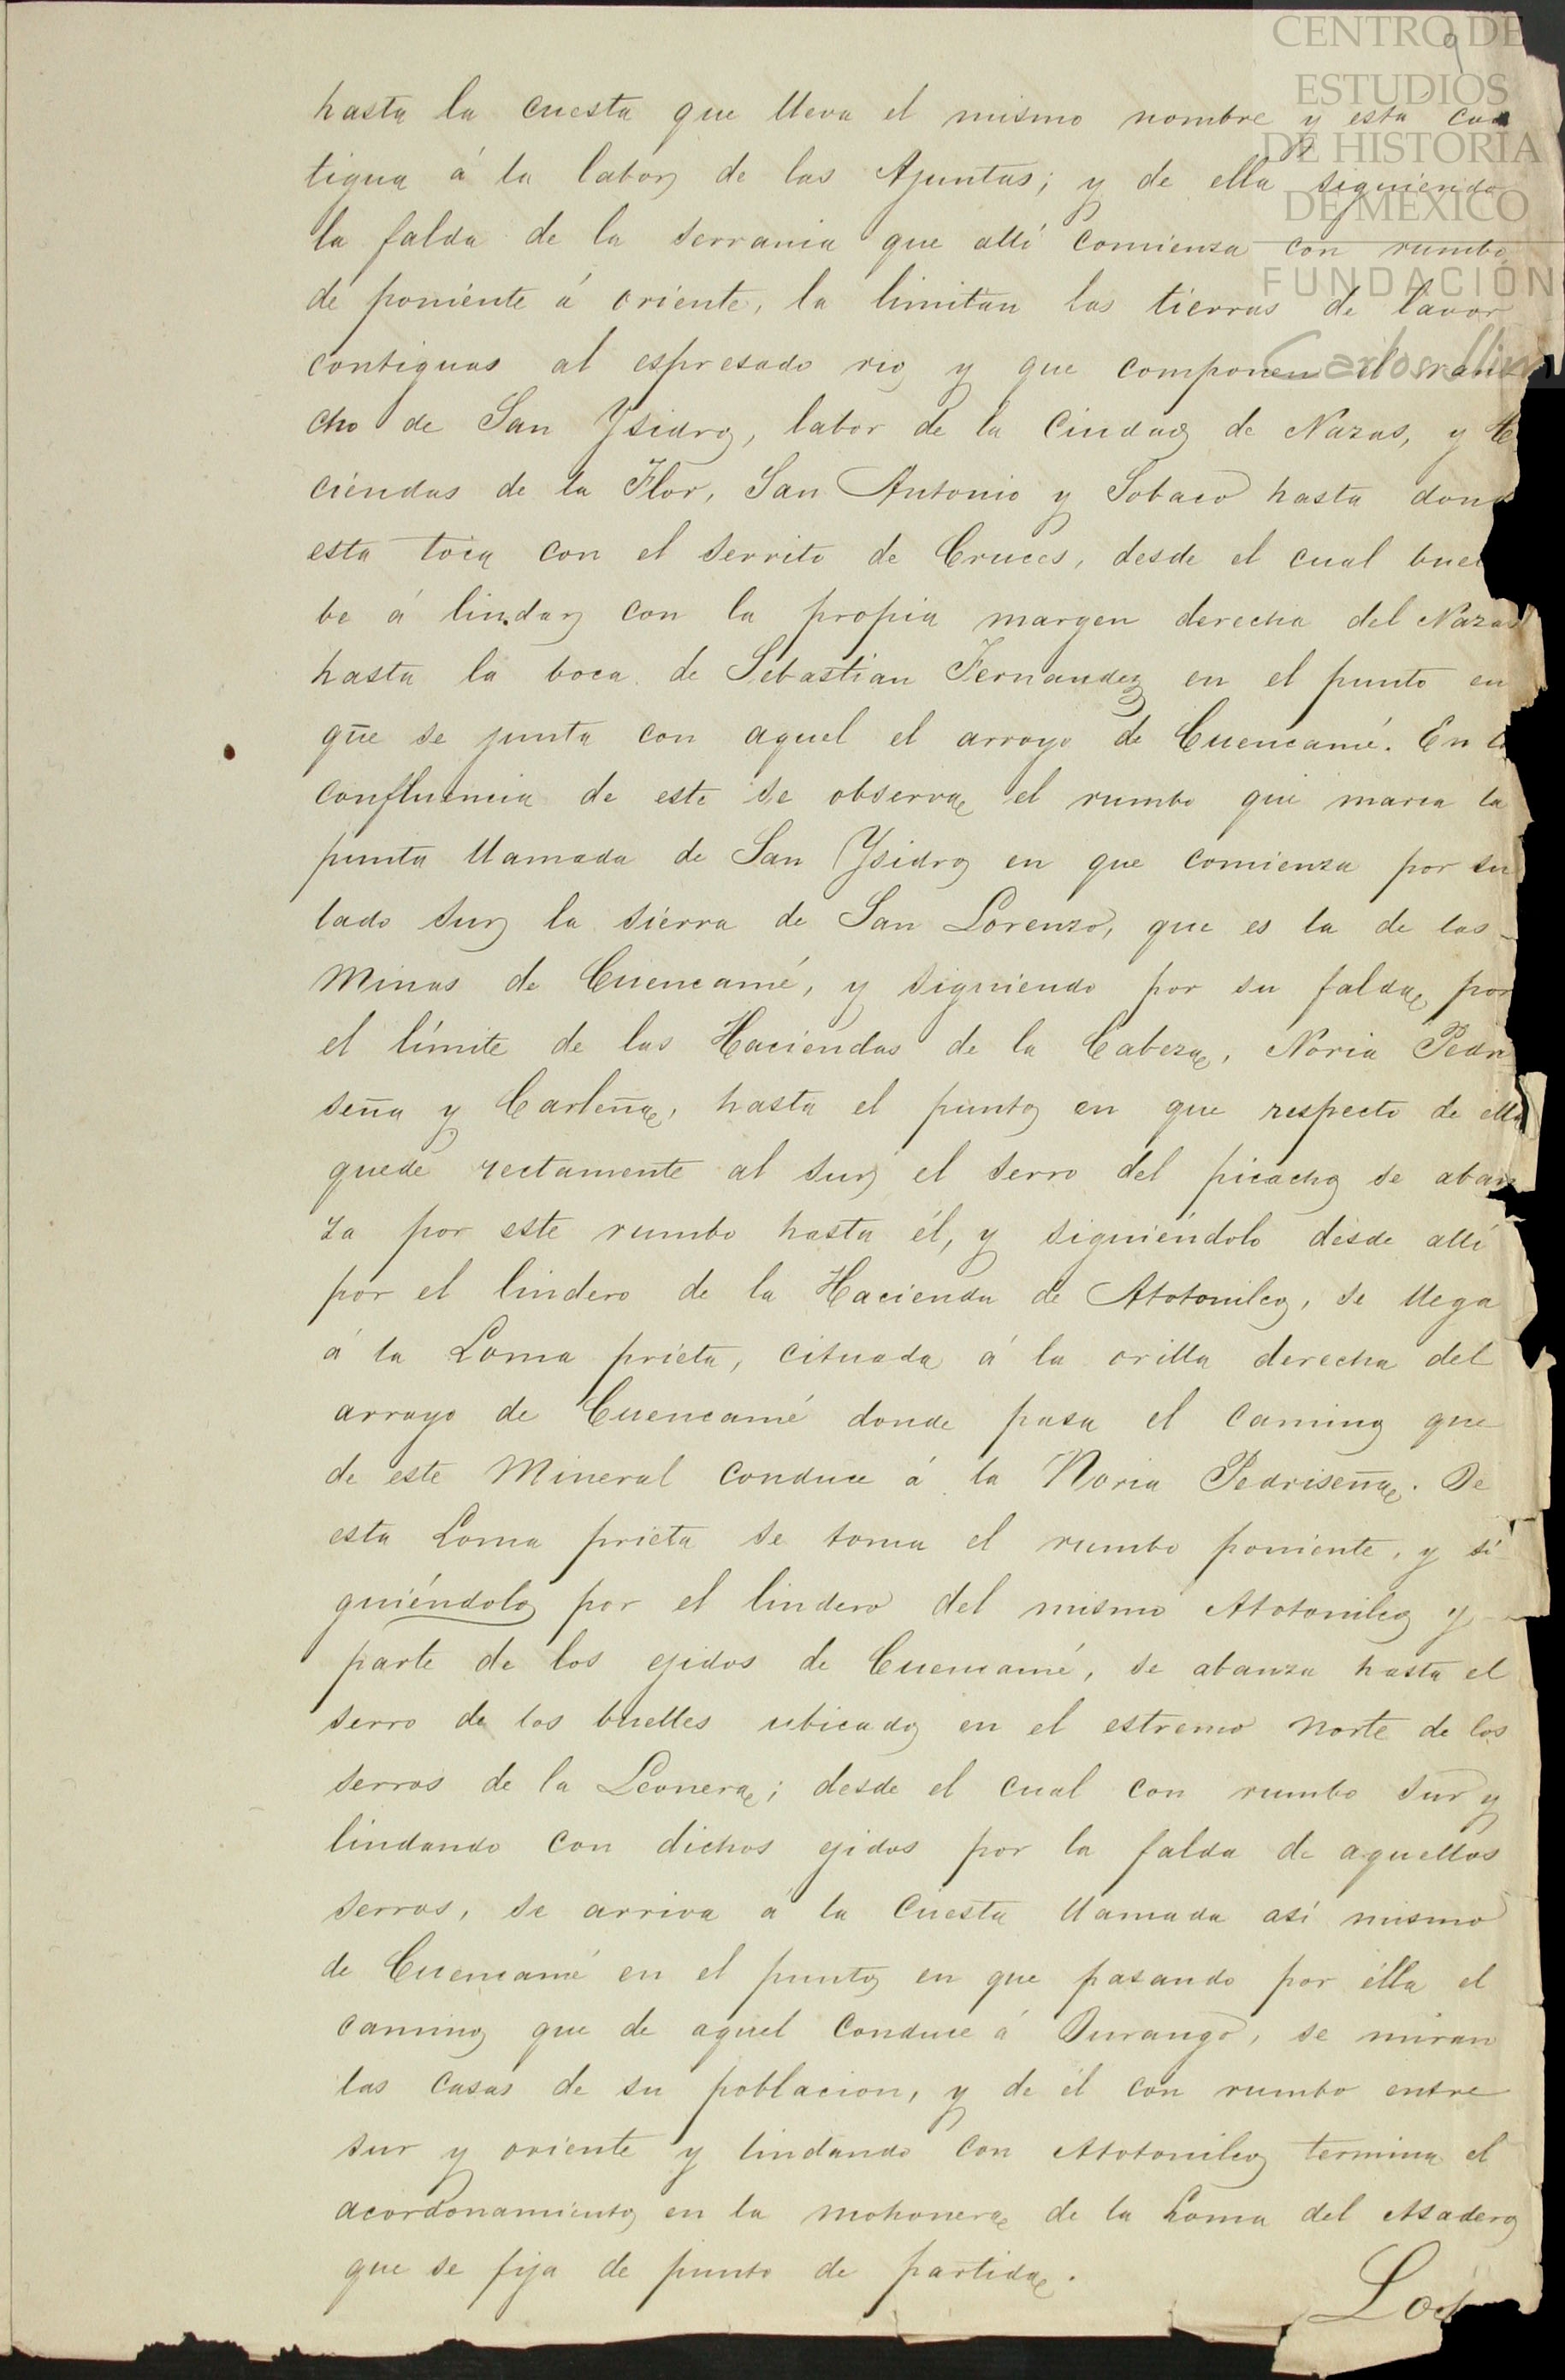 CENTRO DE
ESTUDIOS
DE HISTORIA
DE MEXICO
FUNDACIÓN
Carlos Slim
9
hasta la cuesta que lleva el mismo nombre y esta con
tigua á la labor de las Ajuntas; y de ella siguiendo
la falda de la serrania que allí comienza con rumbo
de poniente á oriente, la limitan las tierras de lavor
contiguas al espresado rio y que componen el ran
cho de San Ysidro, labor de la Ciudad de Nazas, y
ciendas de la Flor, San Antonio y Sobaco hasta dond
esta toca con el serrito de Cruces, desde el cual buel
be á lindar con la propia margen derecha del Nazas
hasta la boca de Sebastian Fernandez en el punto en
que se junta con aquel el arroyo de Cuencamé. En la
confluencia de este se observa el rumbo que marca la
punta llamada de San Ysidro en que comienza por su
lado sur la sierra de San Lorenzo, que es la de las
Minas de Cuencamé, y siguiendo por su falda por
el límite de las Haciendas de la Cabeza, Noria Pedri
seña y Carleña, hasta el punto en que respecto de ella
quede rectamente al sur el serro del picacho se aban
za por este rumbo hasta él, y siguiéndolo desde allí
por el lindero de la Hacienda de Atotonilco, se llega
á la Loma prieta, cituada á la orilla derecha del
arroyo de Cuencamé donde pasa el camino que
de este Mineral conduce á la Noria Pedriseña. De
esta Loma prieta se toma el rumbo poniente, y si
guiéndolo por el lindero del mismo Atotonilco y
parte de los ejidos de Cuencamé, se abanza hasta el
serro de los buelles ubicado en el estremo Norte de los
serros de la Leonera; desde el cual con rumbo sur y
lindando con dichos ejidos por la falda de aquellos
serros, se arriva á la Cuesta llamada así mismo
de Cuencamé en el punto en que pasando por élla el
camino que de aquel conduce á Durango, se miran
las casas de su poblacion, y de él con rumbo entre
sur y oriente y lindando con Atotonilco termina el
acordonamiento en la mohonera de la Loma del Asadero
que se fija de punto de partida.